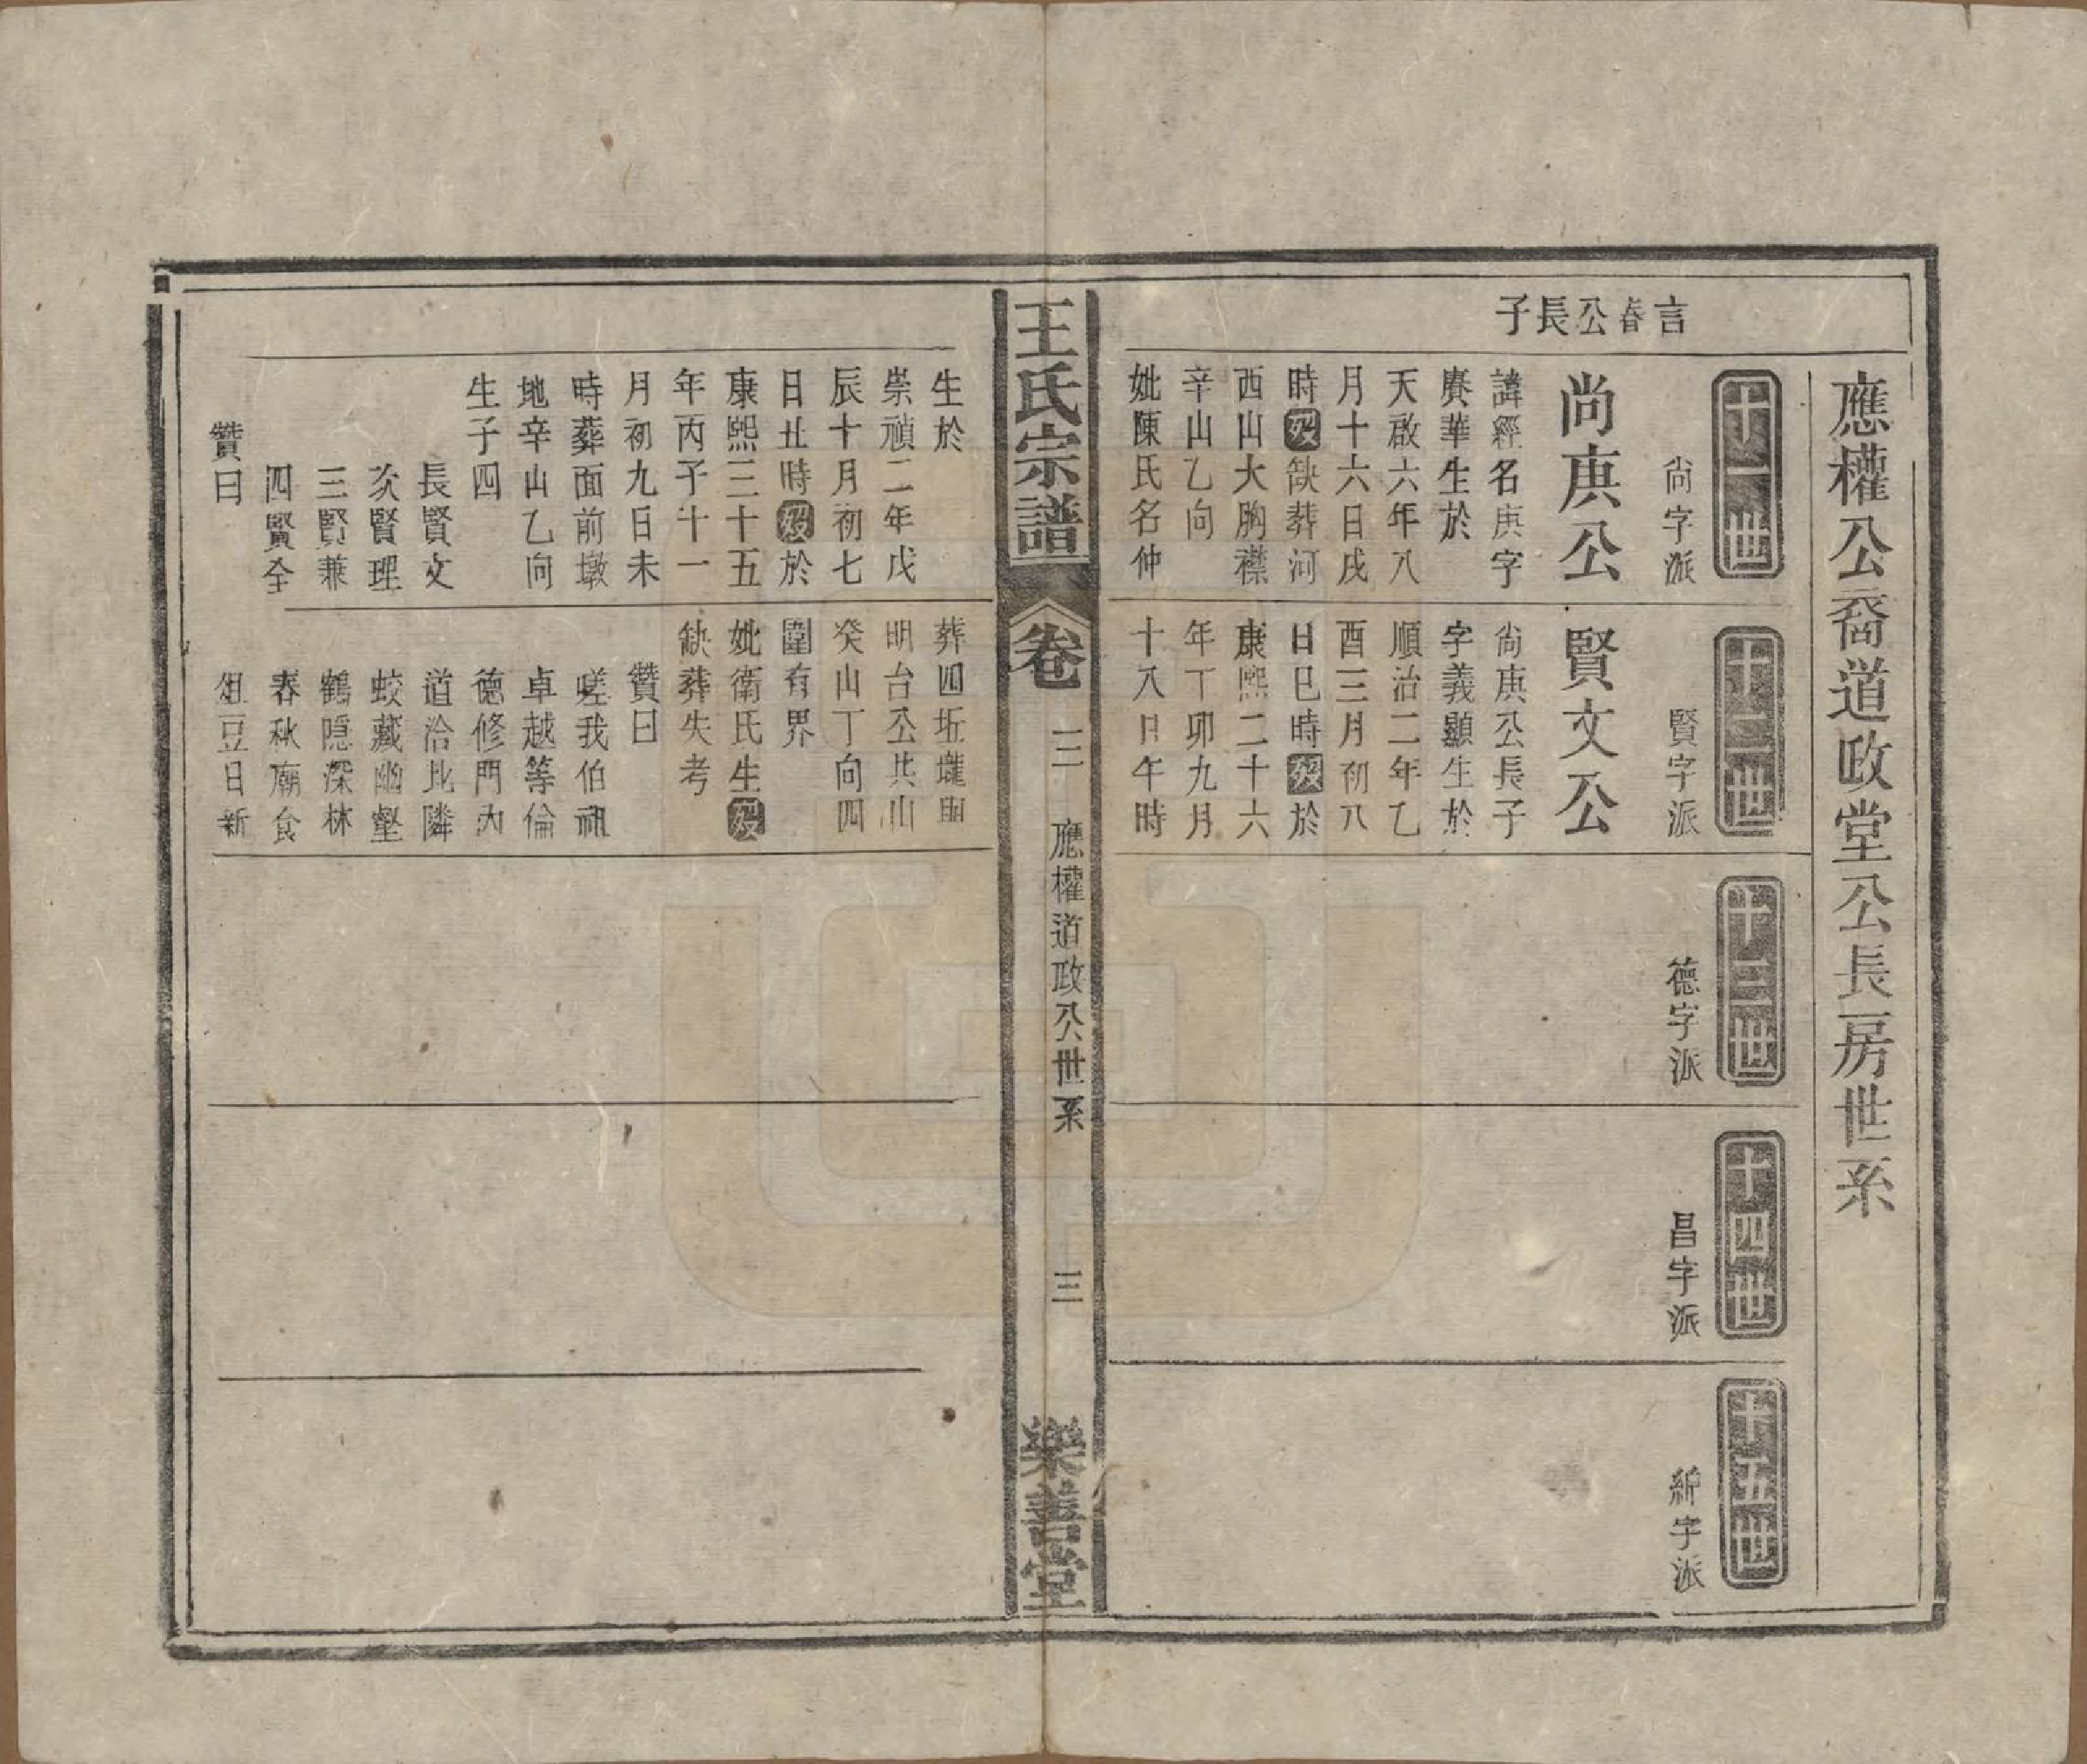 應權公裔道政堂公長房世系
言春公長子
十一世
尚字派
尚庚公
諱經名庚字
賡華生於
天啟六年八
月十六日戌
時歿缺葬河
西山大胸襟
辛山乙向
妣陳氏名仲
十二世
賢字派
賢文公
尚庚公長子
字義顯生於
順治二年乙
酉三月初八
日巳時歿於
康熙二十六
年丁卯九月
十八日午時
十三世
德字派
十四世
昌字派
十五世
新字派
王氏宗譜
卷二
應權道政公世系
三
樂善堂
生於
崇禎二年戊
辰十月初七
日丑時歿於
康熙三十五
年丙子十一
月初九日未
時葬面前墩
地辛山乙向
生子四
長賢文
次賢理
三賢兼
四賢全
贊曰
葬四坵壠
明台公共山
癸山丁向四
圍有界
妣衛氏生歿
缺葬失考
贊曰
嗟我伯祖
卓越等倫
德修門內
道洽比隣
蛟藏幽壑
鶴隱深林
春秋廟食
俎豆日新